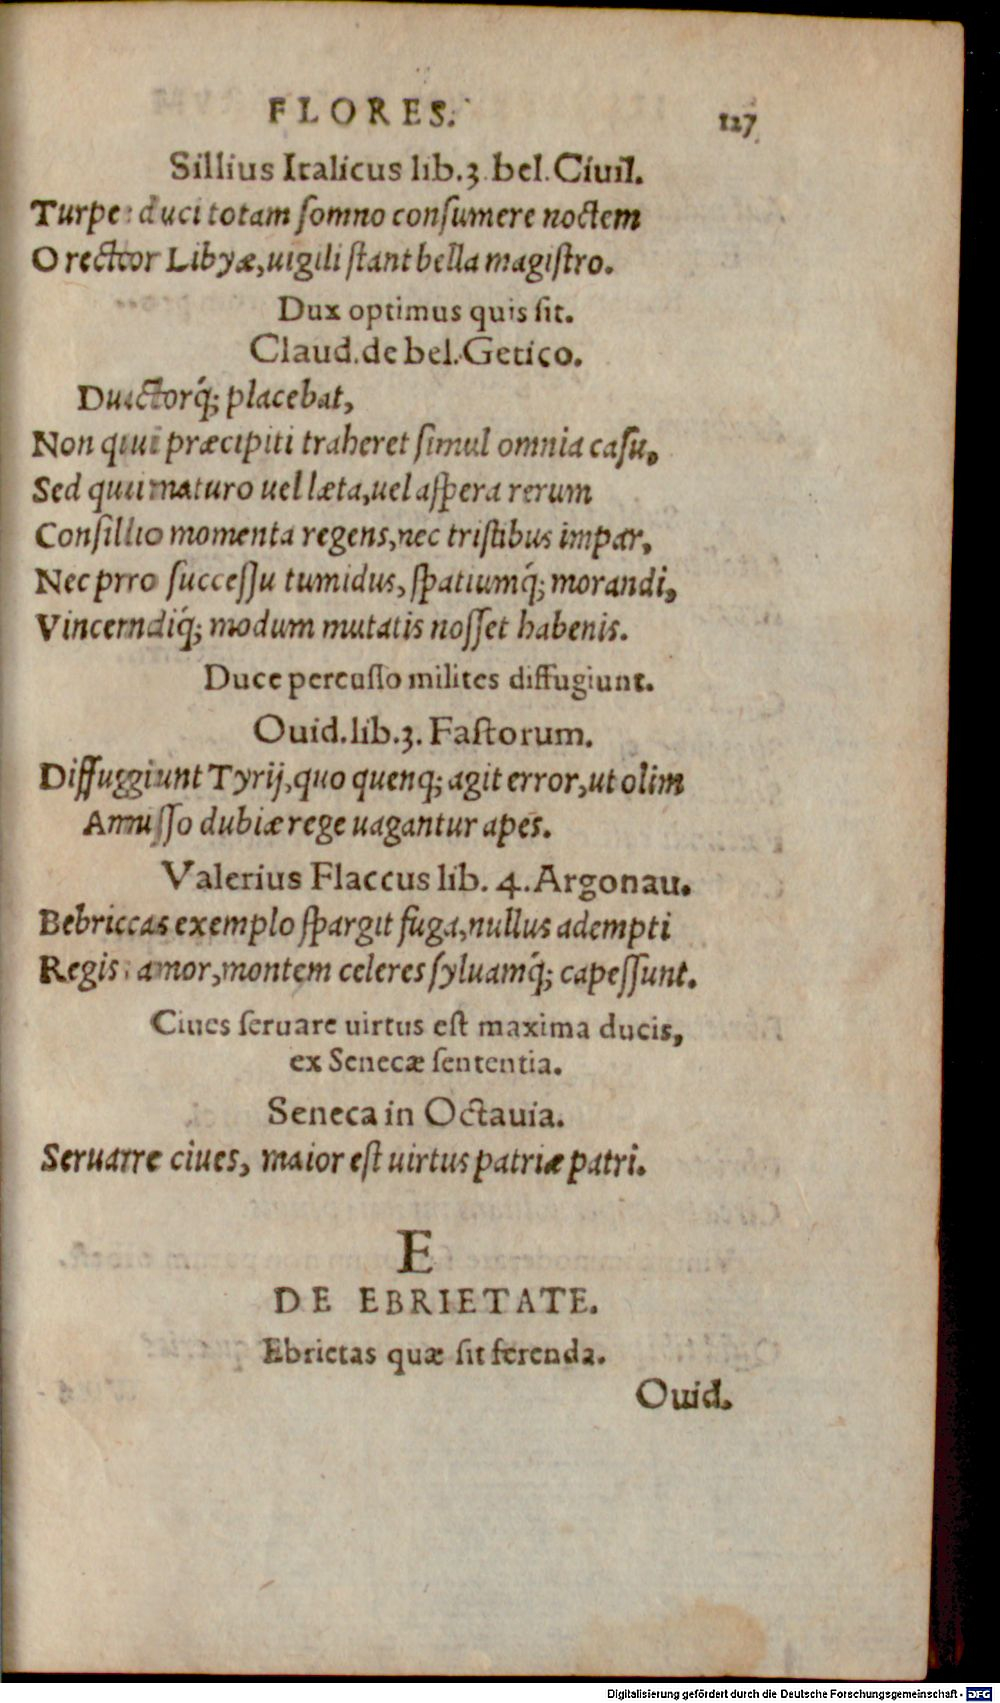 FLORES. 127
Sillius Italicus lib.3. bel. Ciuil.
Turpe duci totam ſomno conſumere noctem
O rector Libyæ, uigili ſtant bella magiſtro.
Dux optimus quis ſit.
Claud. de bel. Getico.
Ductorq́; placebat,
Non qui præcipiti traheret ſimul omnia caſu,
Sed qui maturo uel læta, uel aſpera rerum
Conſilio momenta regens, nec triſtibus impar,
Nec pro ſucceſſu tumidus, ſpatiumq́; morandi,
Vincendiq́; modum mutatis noſſet habenis.
Duce percuſſo milites diffugiunt.
Ouid. lib.3. Faſtorum.
Diffugiunt Tyrij, quo quenq; agit error, ut olim
Amiſſo dubiæ rege uagantur apes.
Valerius Flaccus lib. 4. Argonau.
Bebricas exemplo ſpargit fuga, nullus adempti
Regis amor, montem celeres ſyluamq́; capeſſunt.
Ciues ſeruare uirtus eſt maxima ducis,
ex Senecæ ſententia.
Seneca in Octauia.
Seruare ciues, maior eſt uirtus patriæ patri.
E
DE EBRIETATE.
Ebrietas quæ ſit ferenda.
Ouid.
Digitalisierung gefördert durch die Deutsche Forschungsgemeinschaft - DFG